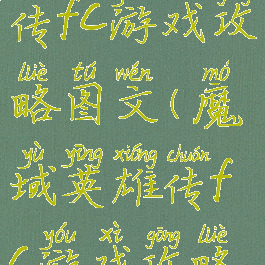 传fC游戏攻
lüè tú wén mó
略图文(魔
yù yīng xióng chuán
域英雄传f
yóu xì gōng lüè
C游戏攻略